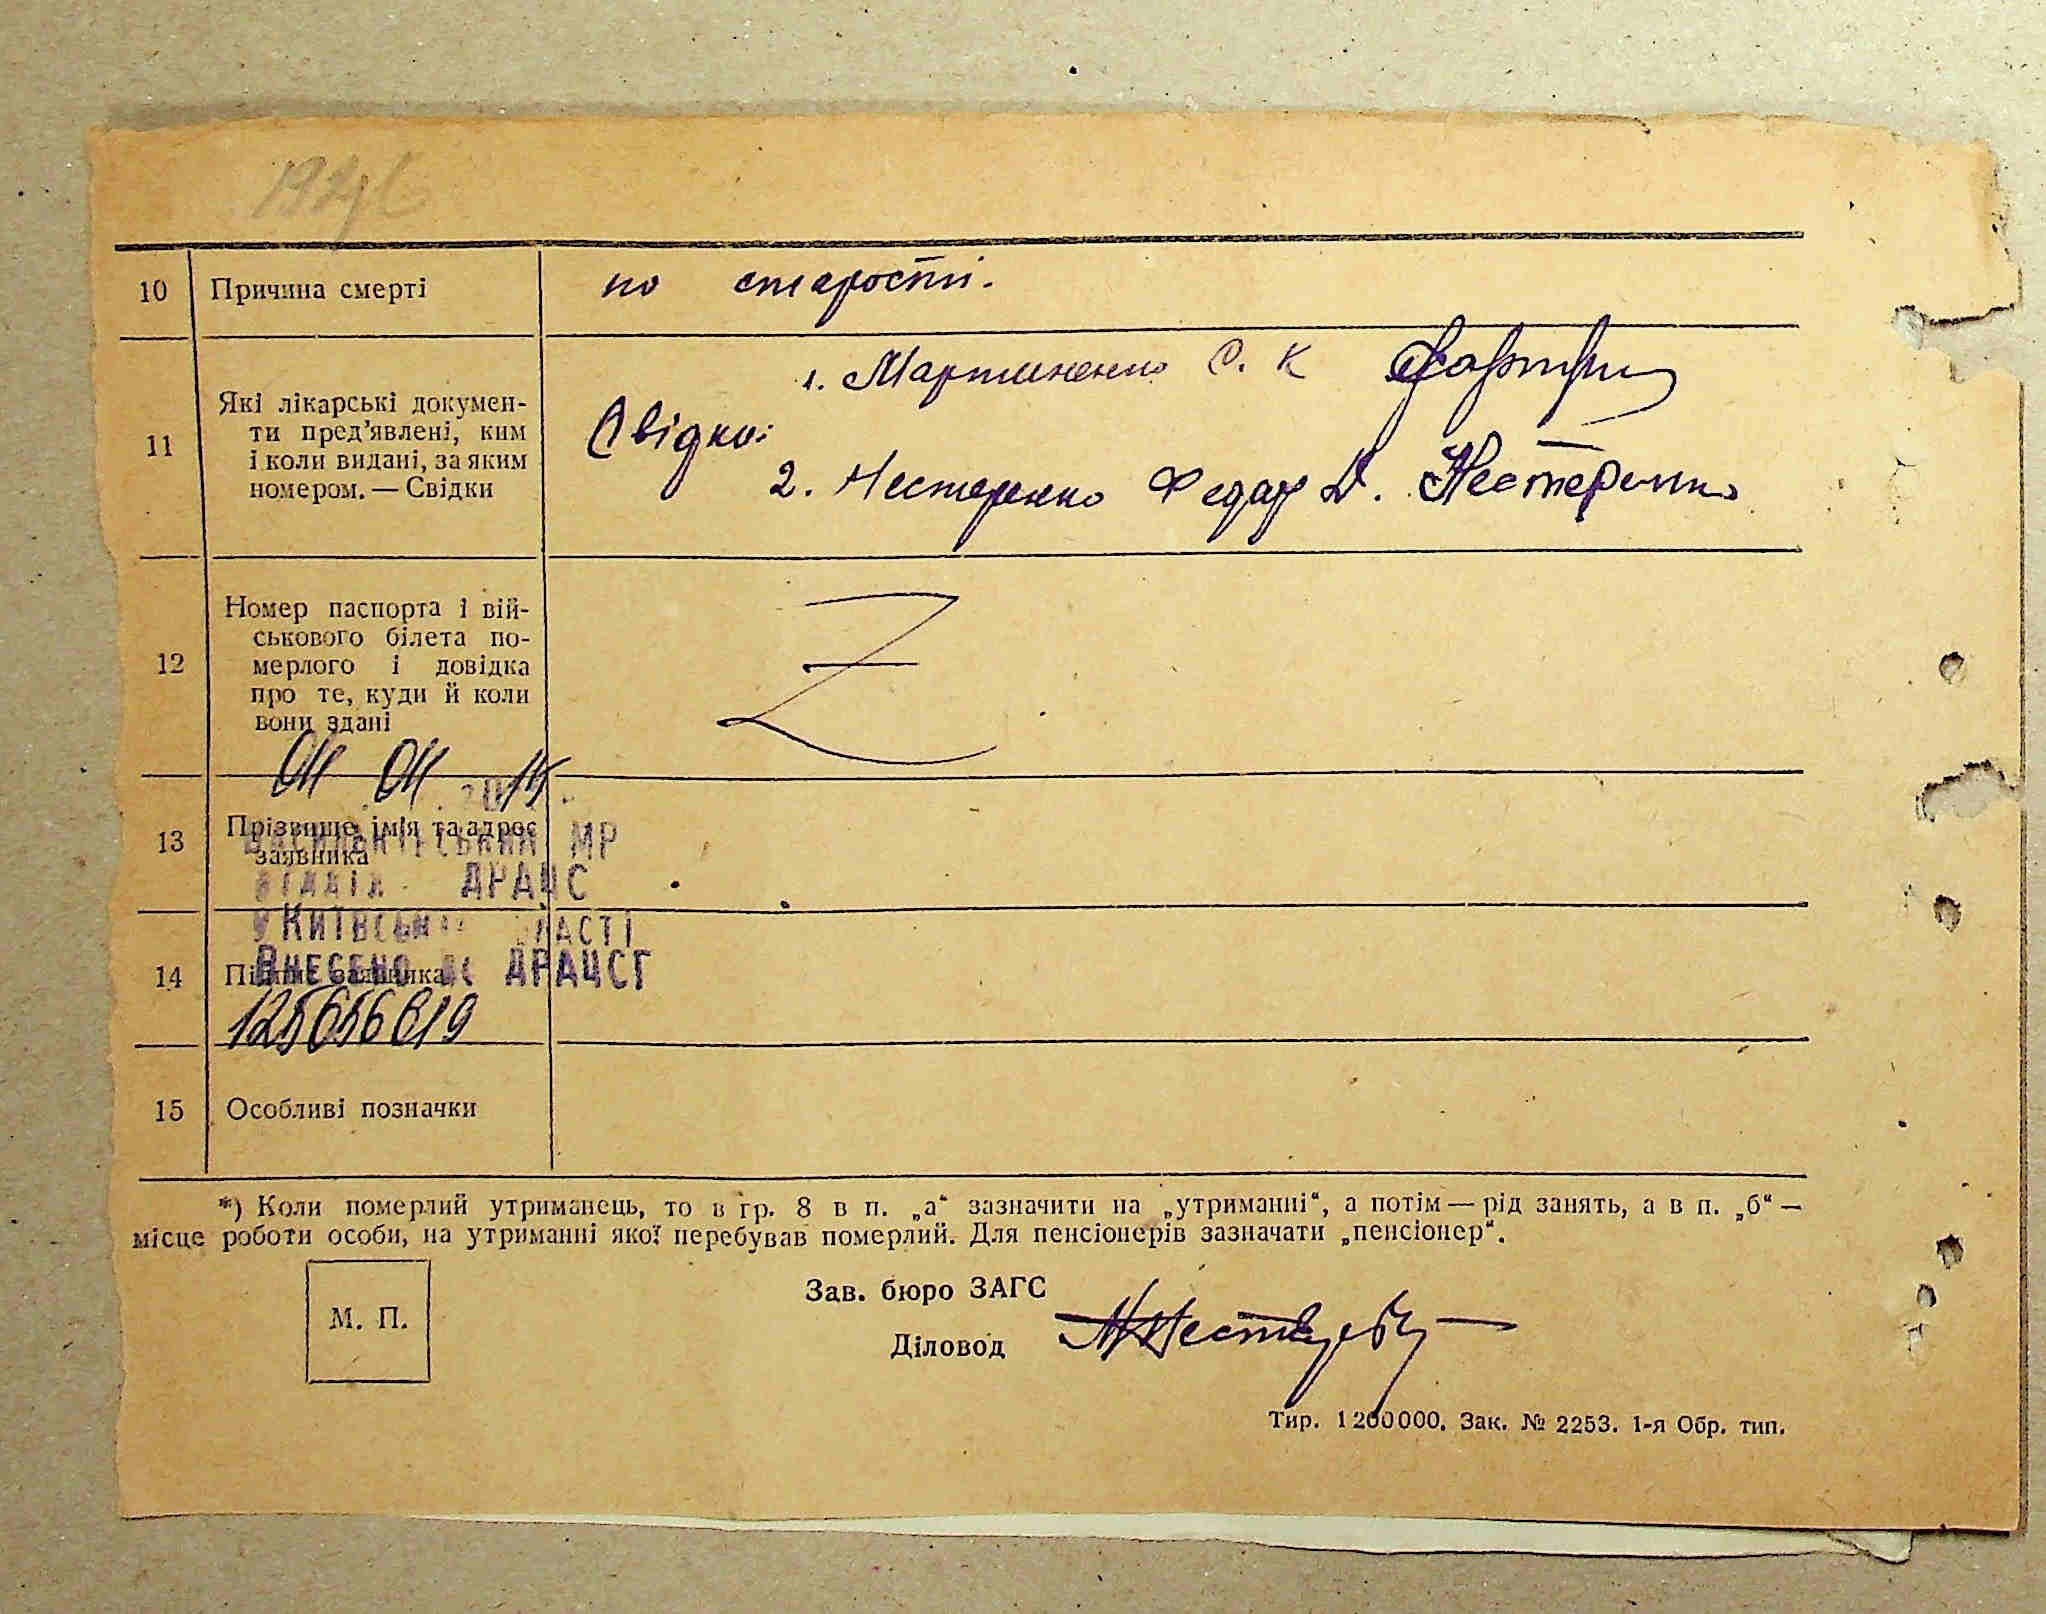 1946
10 Причина смерті по старості.
1. Мартиненко С. К
11 Які лікарські докумен-
ти пред'явлені, ким
і коли видані, за яким
номером. — Свідки
Свідки:
2. Нестеренко Федор Д. Нестеренко
12 Номер паспорта і вій-
ськового білета по-
мерлого і довідка
про те, куди й коли
вони здані
Z
04 04 2014
13 Прізвище, імія та адрес
заявника
ВАСИЛЬКІВСЬКИЙ МР
ВІДДІЛ ДРАЦС
У КИЇВСЬКІЙ ОБЛАСТІ
14 Підпис заявника
ВНЕСЕНО ДО ДРАЦСГ
15 Особливі позначки
*) Коли померлий утриманець, то в гр. 8 в п. „а“ зазначити на „утриманні“, а потім — рід занять, а в п. „б“ —
місце роботи особи, на утриманні якої перебував померлий. Для пенсіонерів зазначати „пенсіонер“.
М. П.
Зав. бюро ЗАГС
Діловод
Тир. 1200000. Зак. № 2253. 1-я Обр. тип.